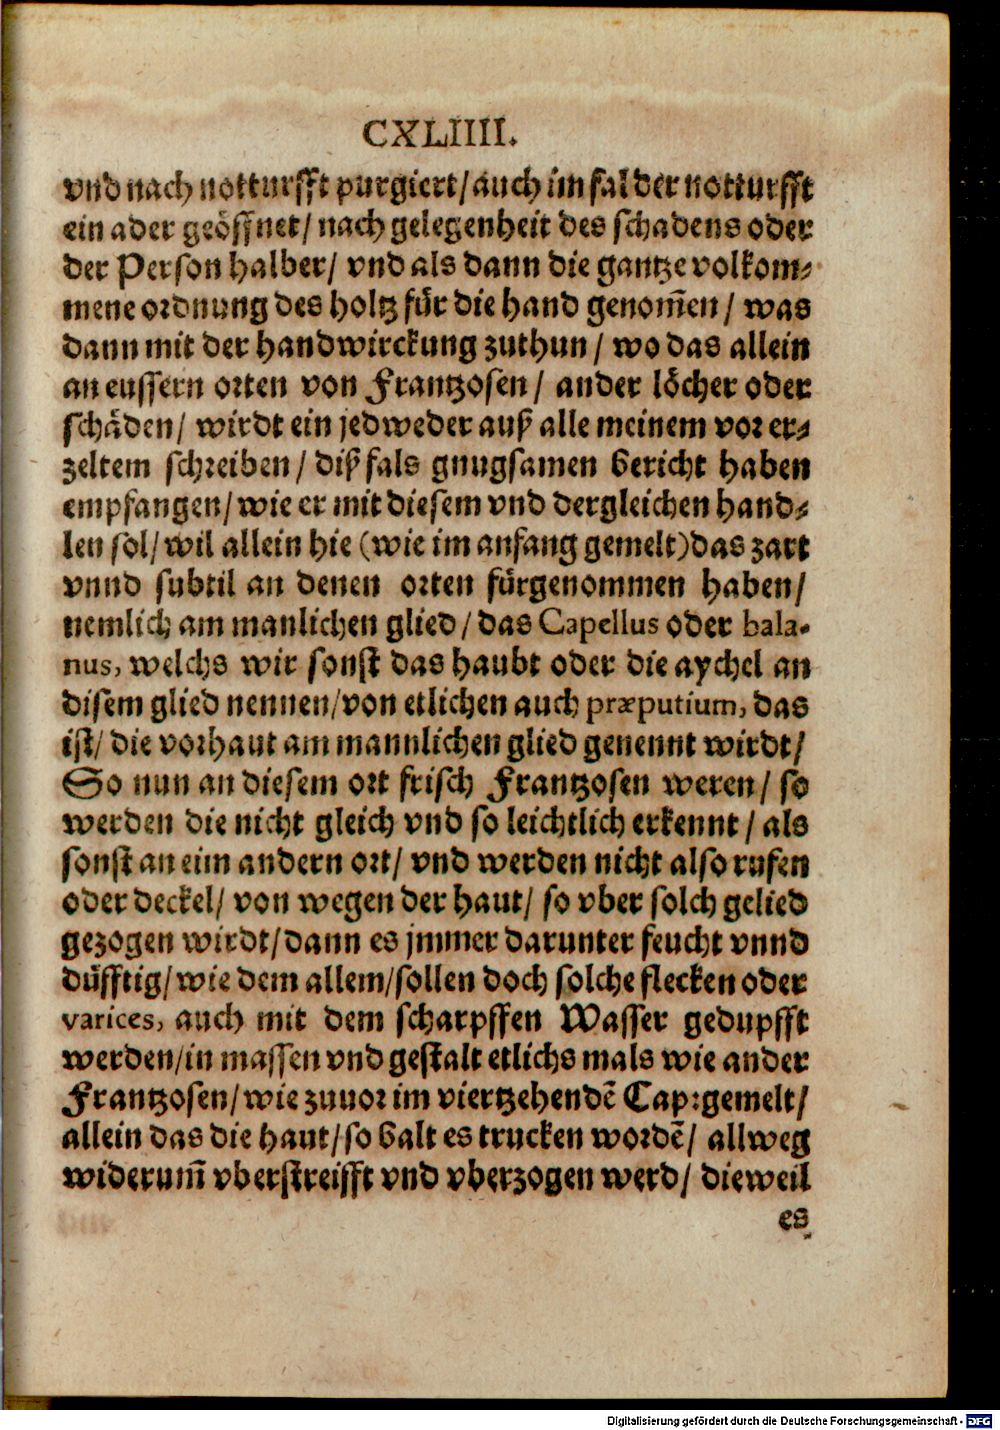 CXLIIII.
vnd nach notturfft purgiert/auch im fal der notturfft
ein ader geöffnet/ nach gelegenheit des schadens oder
der Person halber/ vnd als dann die gantze volkom⸗
mene ordnung des holtz für die hand genom̃en / was
dann mit der handwirckung zuthun / wo das allein
an eussern orten von Frantzosen / ander löcher oder
schäden/ wirdt ein jedweder auß alle meinem vor er⸗
zeltem schreiben / diß fals gnugsamen bericht haben
empfangen/wie er mit diesem vnd dergleichen hand⸗
len sol/wil allein hie (wie im anfang gemelt)das zart
vnnd subtil an denen orten fürgenommen haben/
nemlich am manlichen glied / das Capellus oder bala-
nus, welchs wir sonst das haubt oder die aychel an
disem glied nennen/von etlichen auch præputium, das
ist/ die vorhaut am mannlichen glied genennt wirdt/
So nun an diesem ort frisch Frantzosen weren / so
werden die nicht gleich vnd so leichtlich erkennt / als
sonst an eim andern ort/ vnd werden nicht also rufen
oder deckel/ von wegen der haut/ so vber solch gelied
gezogen wirdt/dann es jmmer darunter feucht vnnd
düfftig/wie dem allem/sollen doch solche flecken oder
varices, auch mit dem scharpffen Wasser gedupfft
werden/in massen vnd gestalt etlichs mals wie ander
Frantzosen/wie zuuor im viertzehendẽ Cap:gemelt/
allein das die haut/so balt es trucken wordẽ/ allweg
widerum̃ vberstreifft vnd vberzogen werd/ dieweil
es
Digitalisierung gefördert durch die Deutsche Forschungsgemeinschaft - DFG